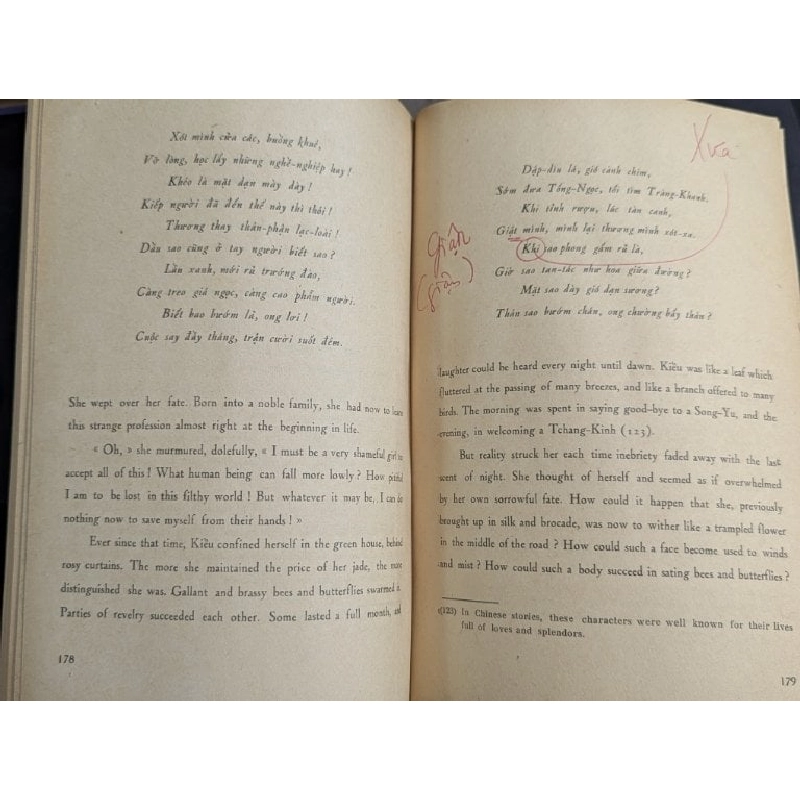 Xót mình cửa các, buồng khuê,
Vỡ lòng, học lấy những nghề-nghiệp hay !
Khéo là mặt dạn mày dày !
Kiếp người đã đến thế này thì thôi !
Thương thay thân-phận lạc-loài !
Dẫu sao cũng ở tay người biết sao ?
Lầu xanh, mới rủ trướng đào,
Càng treo giá ngọc, càng cao phẩm người.
Biết bao bướm lả, ong lơi !
Cuộc say đầy tháng, trận cười suốt đêm.
She wept over her fate. Born into a noble family, she had now to learn
this strange profession almost right at the beginning in life.
« Oh, » she murmured, dolefully, « I must be a very shameful girl to
accept all of this! What human being can fall more lowly? How pitiful
I am to be lost in this filthy world ! But whatever it may be, I can do
nothing now to save myself from their hands ! »
Ever since that time, Kiều confined herself in the green house, behind
rosy curtains. The more she maintained the price of her jade, the more
distinguished she was. Gallant and brassy bees and butterflies swarmed it.
Parties of revelry succeeded each other. Some lasted a full month, and
178
Xưa
Dập-dìu lá, gió cành chim,
Sớm đưa Tống-Ngọc, tối tìm Tràng-Khanh.
Khi tỉnh rượu, lúc tàn canh,
Giật mình, mình lại thương mình xót-xa.
Giận
(giận)
Khi sao phong gấm rủ là,
Giờ sao tan-tác như hoa giữa đường ?
Mặt sao dày gió dạn sương ?
Thân sao bướm chán, ong chường bấy thân ?
laughter could be heard every night until dawn. Kiều was like a leaf which
fluttered at the passing of many breezes, and like a branch offered to many
birds. The morning was spent in saying good-bye to a Song-Yu, and the
evening, in welcoming a Tchang-Kinh (123).
But reality struck her each time inebriety faded away with the last
scent of night. She thought of herself and seemed as if overwhelmed
by her own sorrowful fate. How could it happen that she, previously
brought up in silk and brocade, was now to wither like a trampled flower
in the middle of the road ? How could such a face become used to winds
and mist ? How could such a body succeed in sating bees and butterflies ?
(123) In Chinese stories, these characters were well known for their lives
full of loves and splendors.
179